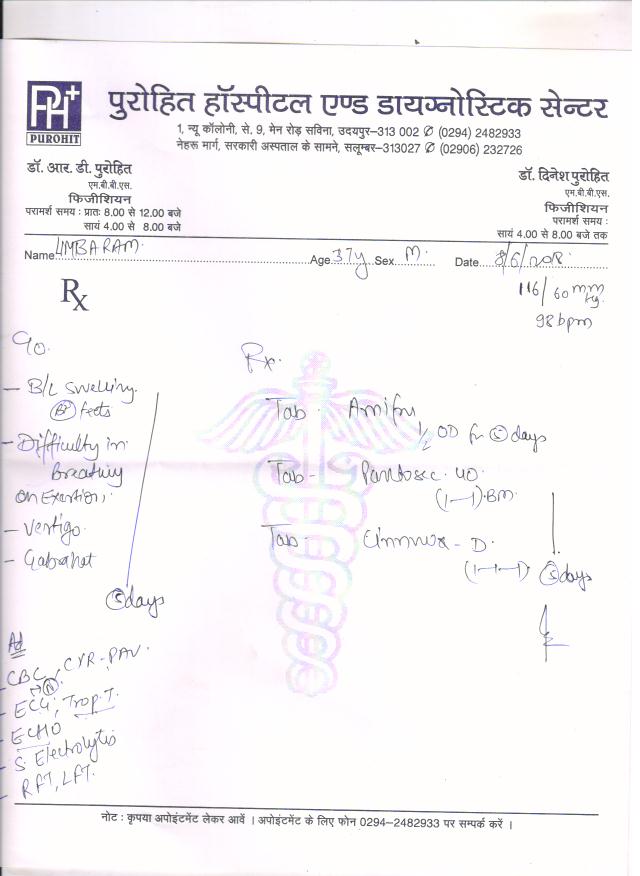 PH+
PUROHIT
पुरोहित हॉस्पीटल एण्ड डायग्नोस्टिक सेन्टर
1, न्यू कॉलोनी, से. 9, मेन रोड़ सविना, उदयपुर–313 002 ✆ (0294) 2482933
नेहरू मार्ग, सरकारी अस्पताल के सामने, सलूम्बर–313027 ✆ (02906) 232726
डॉ. आर. डी. पुरोहित
एम.बी.बी.एस.
फिजीशियन
परामर्श समय : प्रातः 8.00 से 12.00 बजे
सायं 4.00 से 8.00 बजे
डॉ. दिनेश पुरोहित
एम.बी.बी.एस.
फिजीशियन
परामर्श समय :
सायं 4.00 से 8.00 बजे तक
Name LIMBARAM. Age 37y Sex M. Date 8/6/2018.
Rx
116/60 mm Hg.
98 bpm
C/o.
- B/L swelling.
feets
- Difficulty in
Breathing
on Exertion,
- Vertigo.
- Gabrahat
5 days
Rx.
Tab.
1/2 OD for 5 days
Tab- Pantosec. 40.
(1–)·BM.
Tab- D.
(1–1–1) 5 days
Ad
- CBC,
- ECG, Trop.T.
- ECHO
- S. Electrolytis
- RFT, LFT.
नोट : कृपया अपोइंटमेंट लेकर आवें । अपोइंटमेंट के लिए फोन 0294–2482933 पर सम्पर्क करें ।